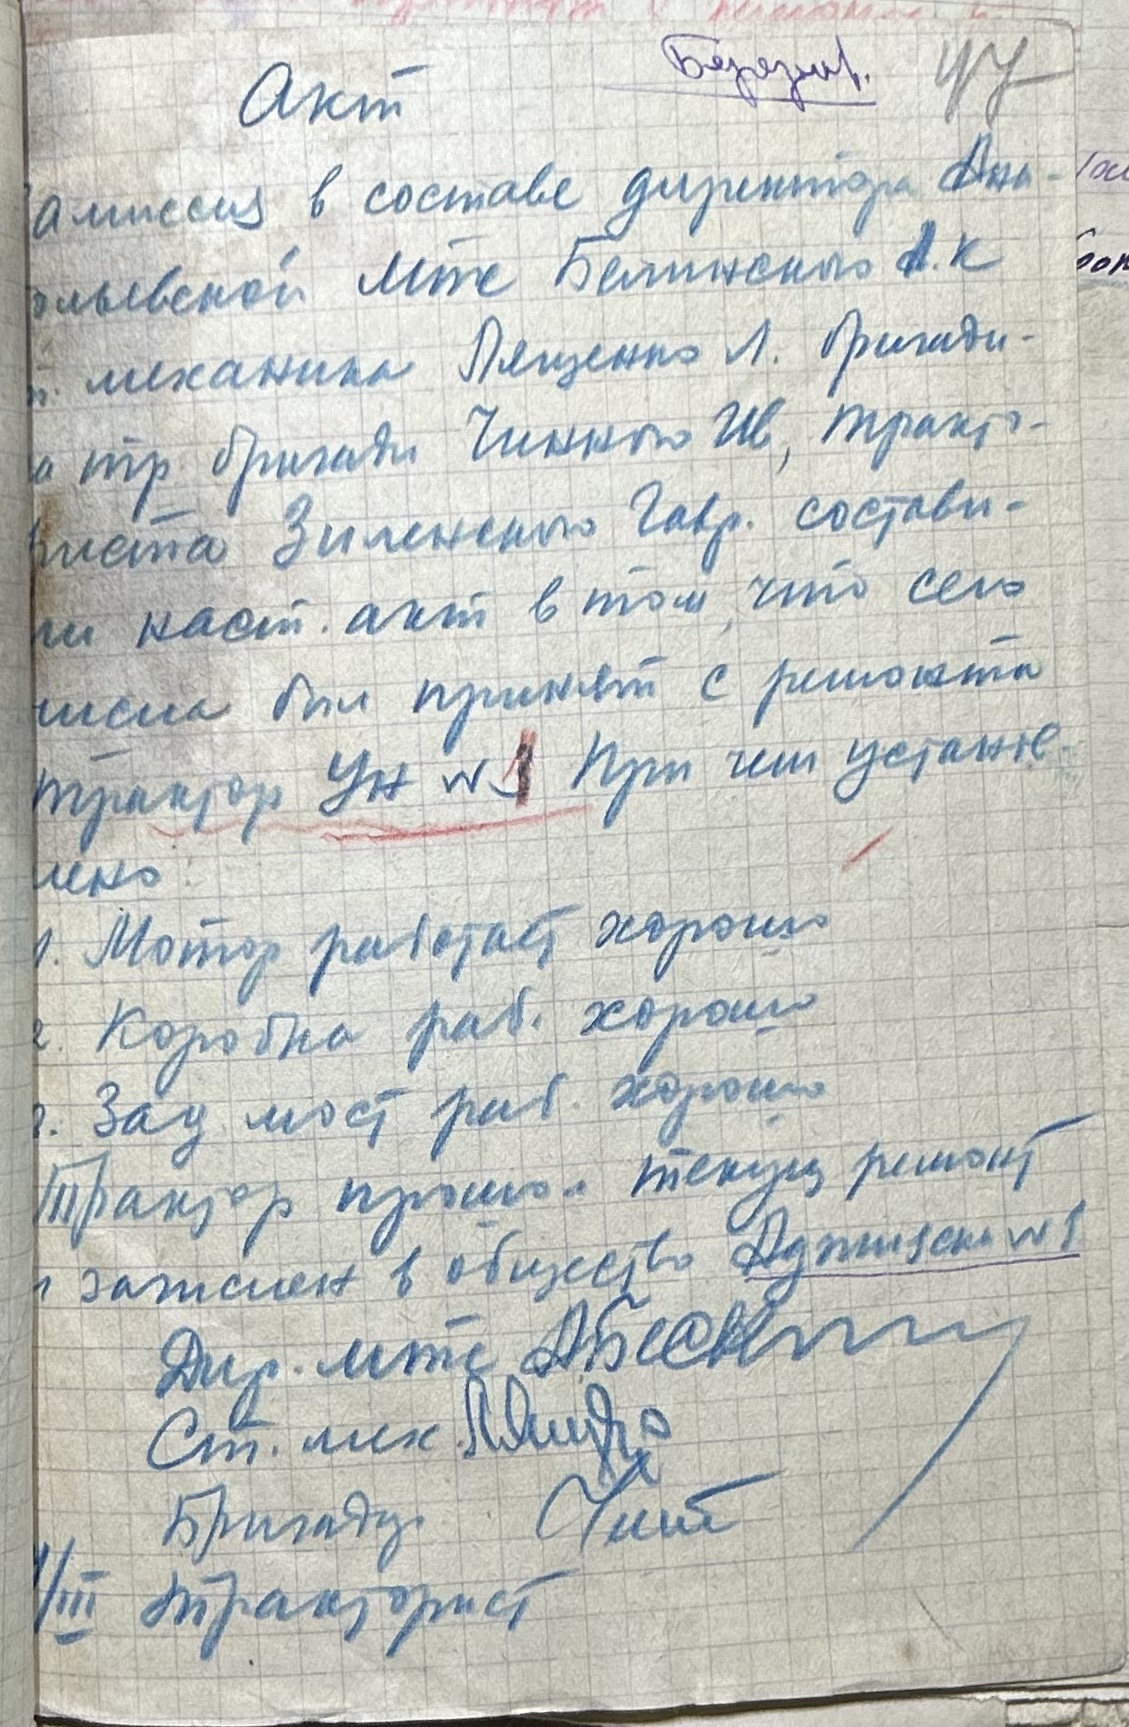 Акт
амиссия в составе директора Ана-
ольевской Мтс Белинского А.К
механика Лященко Л. бригади-
а тр. бригади Чинного Ив, тракто-
риста Зиленского Гавр. состави-
ли наст. акт в том, что сего
числа был принят с ремонта
трактор Ун №1 При чем установ-
лено.
1. Мотор работает хорошо
2. Коробка раб. хорошо
3. Зад. мост раб. хорошо
Трактор прошол текущ ремонт
и зачислен в общество №1
Дир. мтс
Ст. мех.
Бригадир
/III тракторист